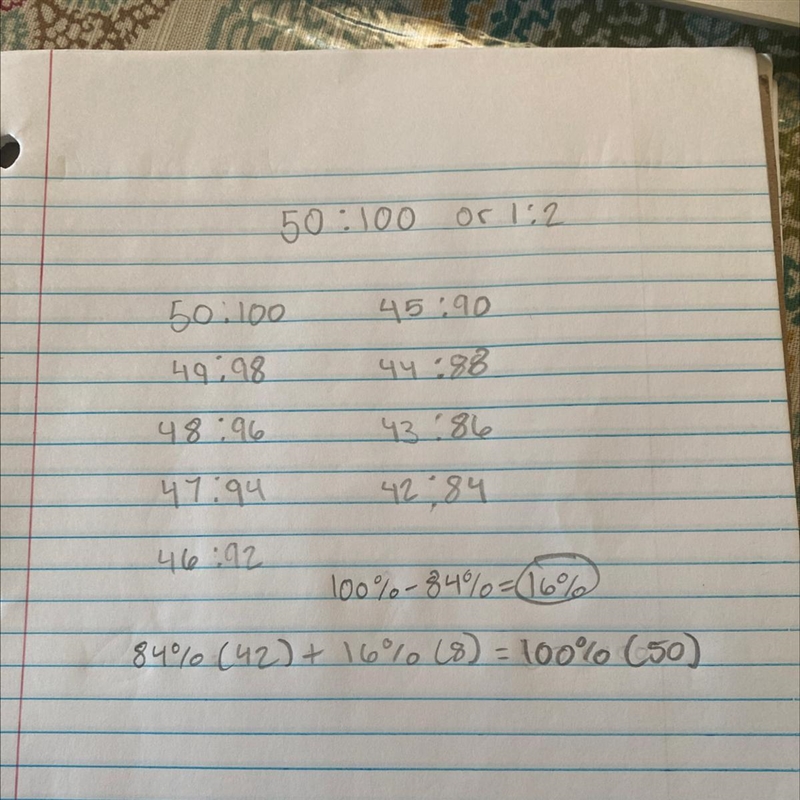 50:100 or 1:2
50:100 45:90
49:98 44:88
48:96 43:86
47:94 42:84
46:92
100%-84%=16%
84%(42)+16%(8)=100%(50)